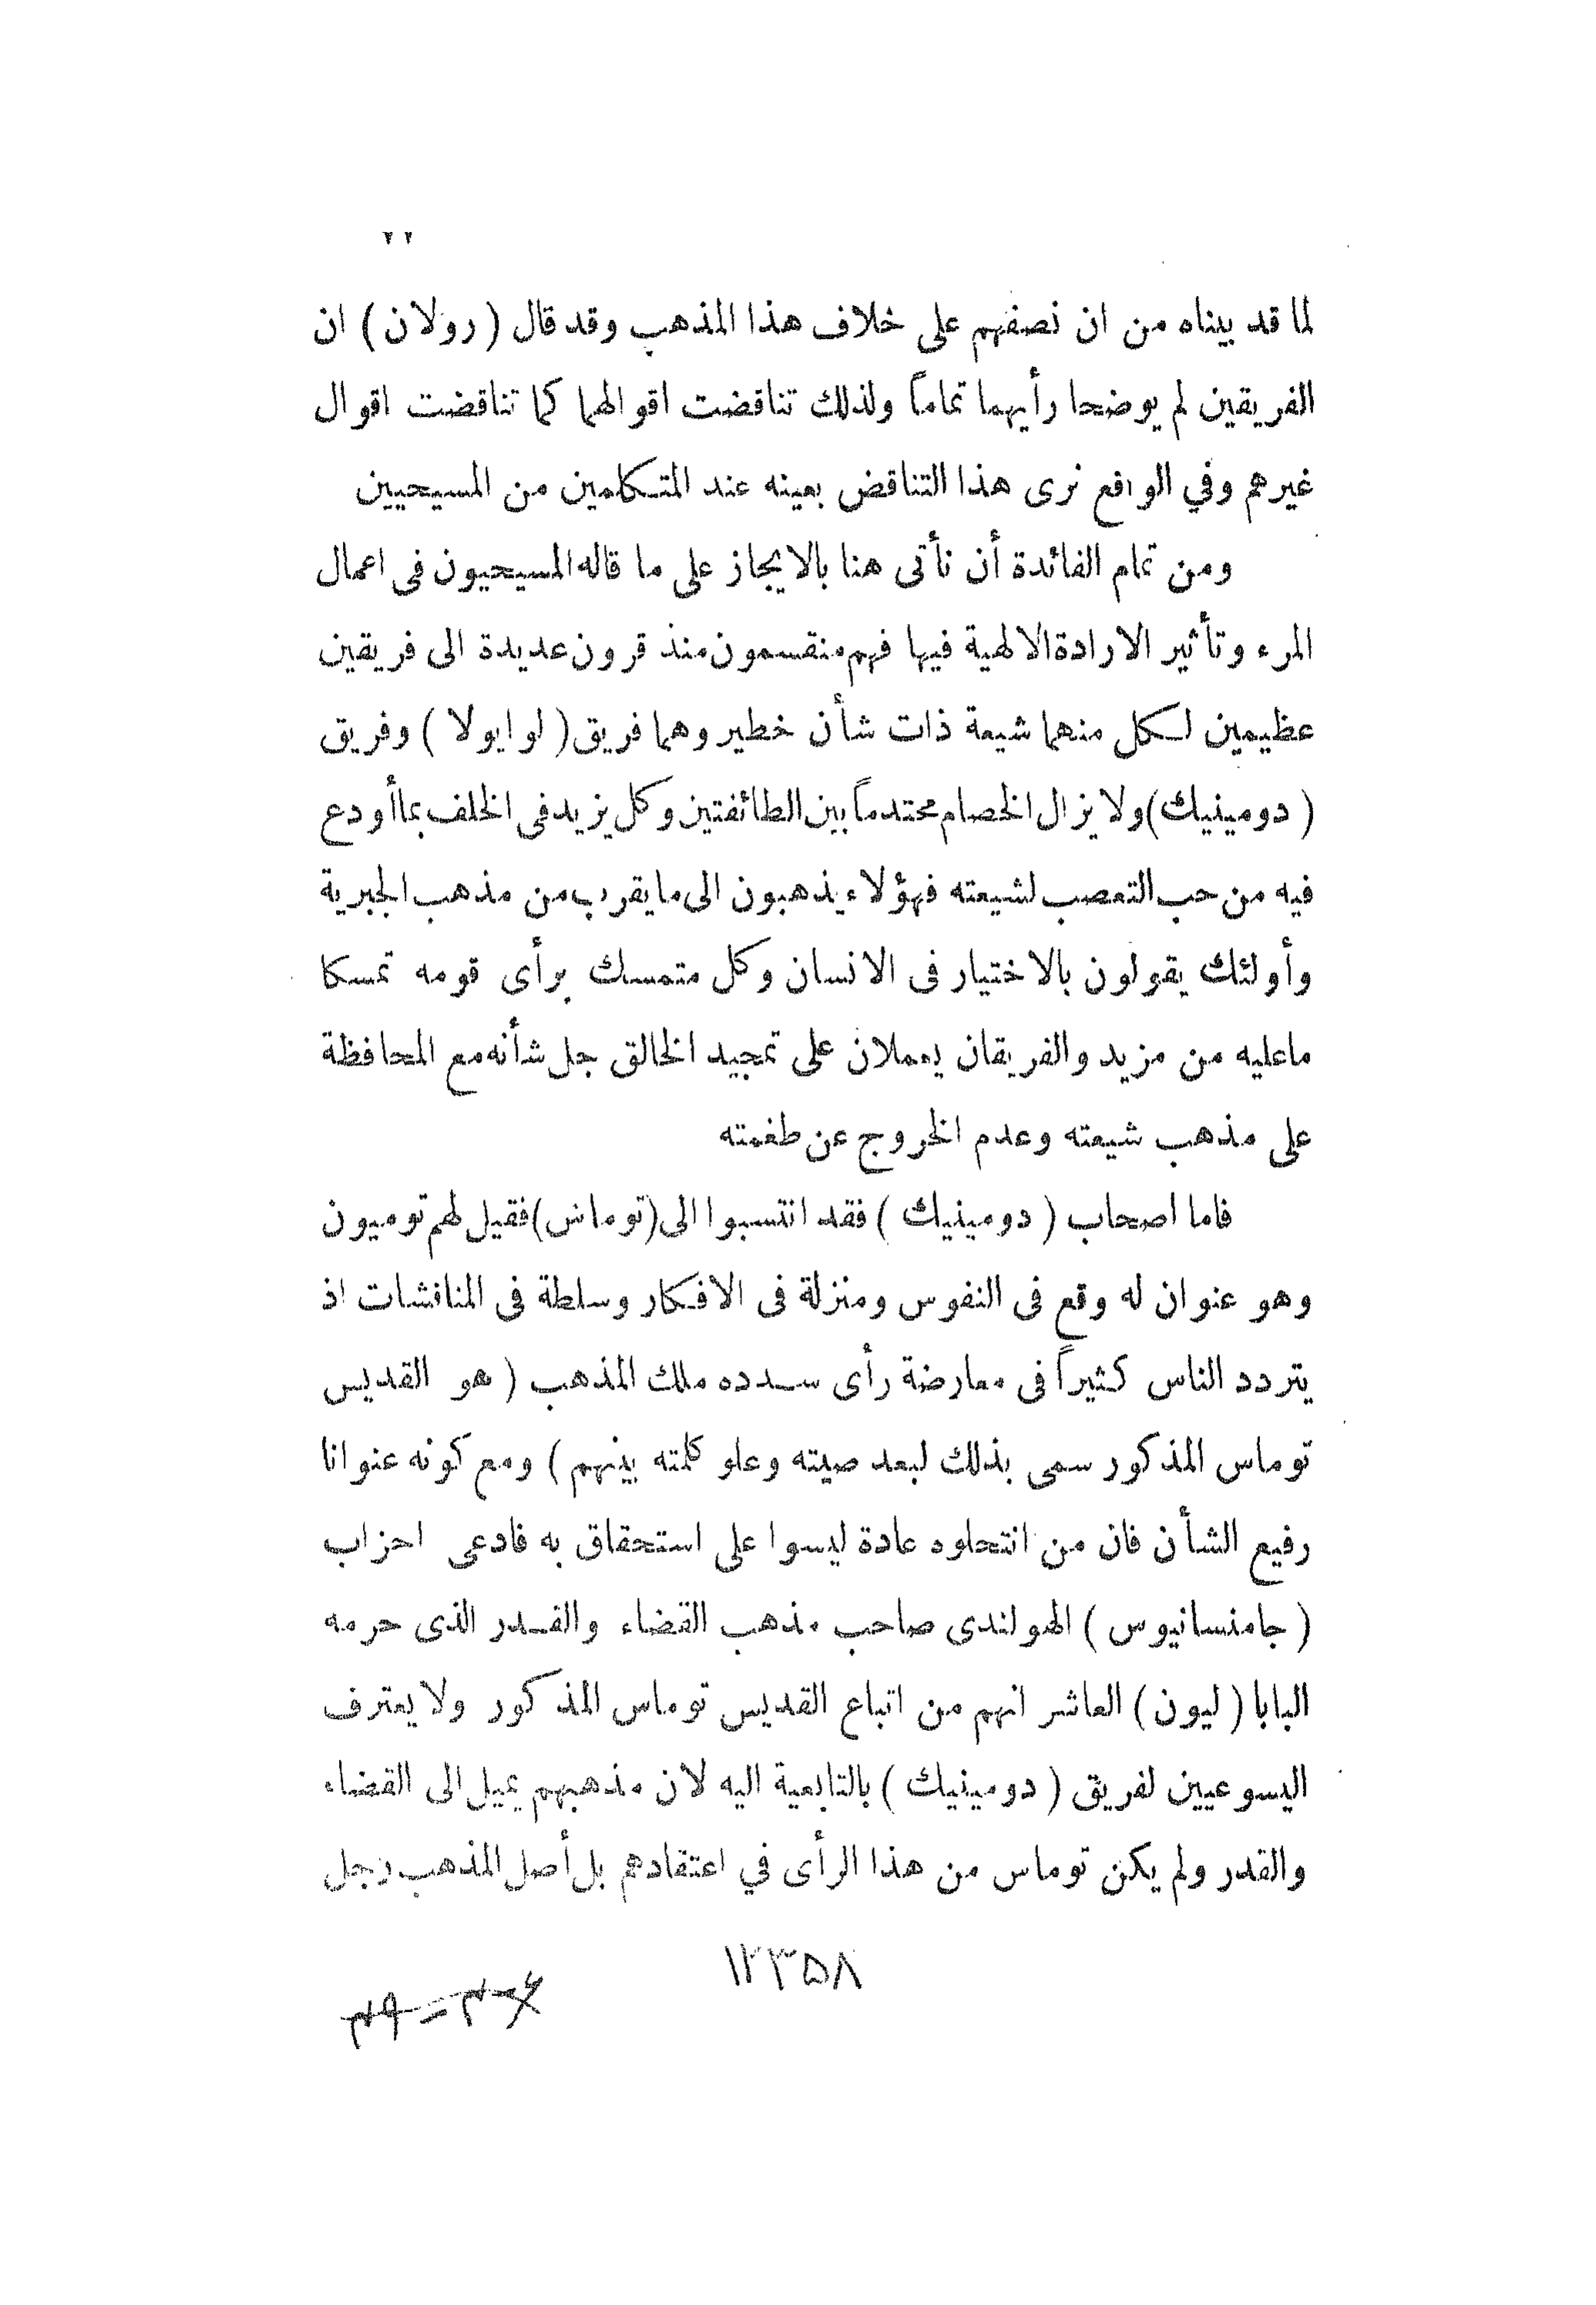 ٢٢
لما قد بيناه من ان نصفهم على خلاف هذا المذهب وقد قال ( رولان ) ان
الفريقين لم يوضحا رأيهما تماماً ولذلك تناقضت اقوالهما كما تناقضت اقوال
غيرهم وفي الواقع نرى هذا التناقض بعينه عند المتكلمين من المسيحيين
ومن تمام الفائدة أن نأتى هنا بالايجاز على ما قاله المسيحيون فى اعمال
المرء وتأثير الارادة الالهية فيها فهم منقسمون منذ قرون عديدة الى فريقين
عظيمين لكل منهما شيعة ذات شأن خطير وهما فريق ( لوايولا ) وفريق
( دومينيك ) ولا يزال الخصام محتدماً بين الطائفتين وكل يزيد فى الخلف بما أودع
فيه من حب التعصب لشيعته فهؤلاء يذهبون الى ما يقرب من مذهب الجبرية
وأولئك يقولون بالاختيار فى الانسان وكل متمسك برأى قومه تمسكا
ماعليه من مزيد والفريقان يعملان على تمجيد الخالق جل شأنه مع المحافظة
على مذهب شيعته وعدم الخروج عن طغمته
فاما اصحاب ( دومينيك ) فقد انتسبوا الى ( توماس ) فقيل لهم توميون
وهو عنوان له وقع فى النفوس ومنزلة فى الافكار وسلطة فى المناقشات اذ
يتردد الناس كثيراً فى معارضة رأى سدده ملك المذهب ( هو القديس
توماس المذكور سمى بذلك لبعد صيته وعلو كلمته بينهم ) ومع كونه عنوانا
رفيع الشأن فان من انتحلوه عادة ليسوا على استحقاق به فادعى احزاب
( جامنسانيوس ) الهولندى صاحب مذهب القضاء والقدر الذى حرمه
البابا ( ليون ) العاشر انهم من اتباع القديس توماس المذكور ولا يعترف
اليسوعيين لفريق ( دومينيك ) بالتابعية اليه لان مذهبهم يميل الى القضاء
والقدر ولم يكن توماس من هذا الرأى في اعتقادهم بل أصل المذهب رجل
١٢٣٥٨